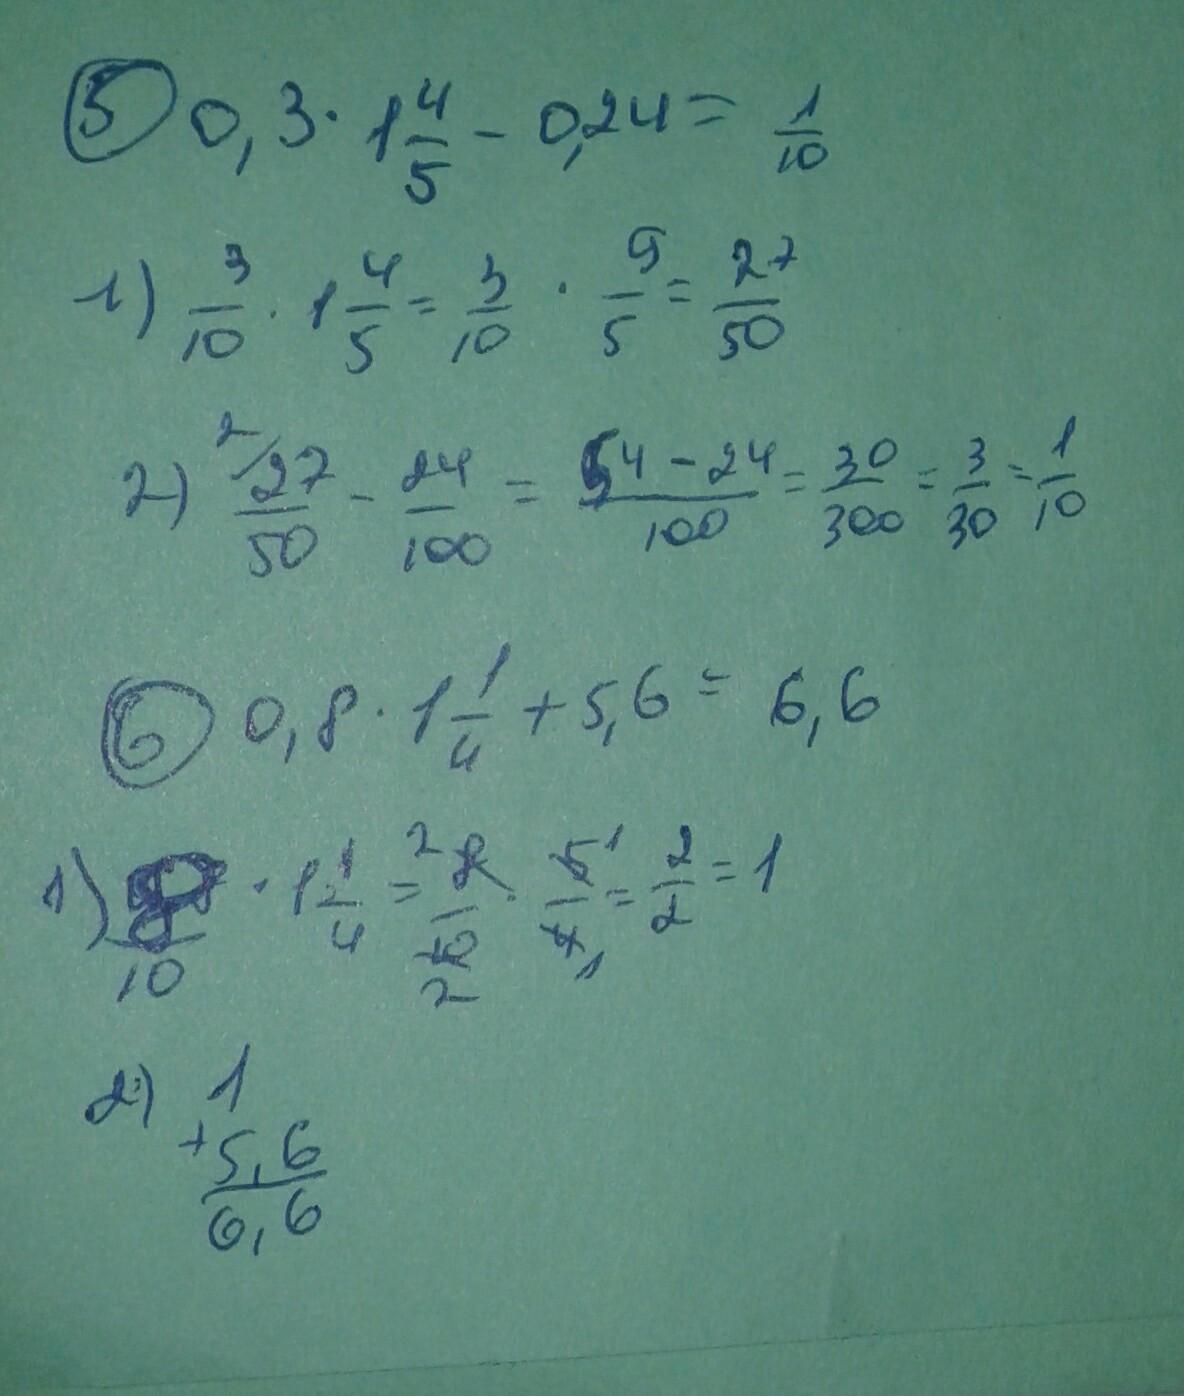 5 0,3 · 1 4/5 - 0,24 = 1/10
1) 3/10 · 1 4/5 = 3/10 · 9/5 = 27/50
2) 2/ 27/50 - 24/100 = 54-24/100 = 30/300 = 3/30 = 1/10
6 0,8 · 1 1/4 + 5,6 = 6,6
1) 8/10 · 1 1/4 = 2 8/10 2 · 5 1/4 1 = 2/2 = 1
2) 1
+ 5,6
6,6